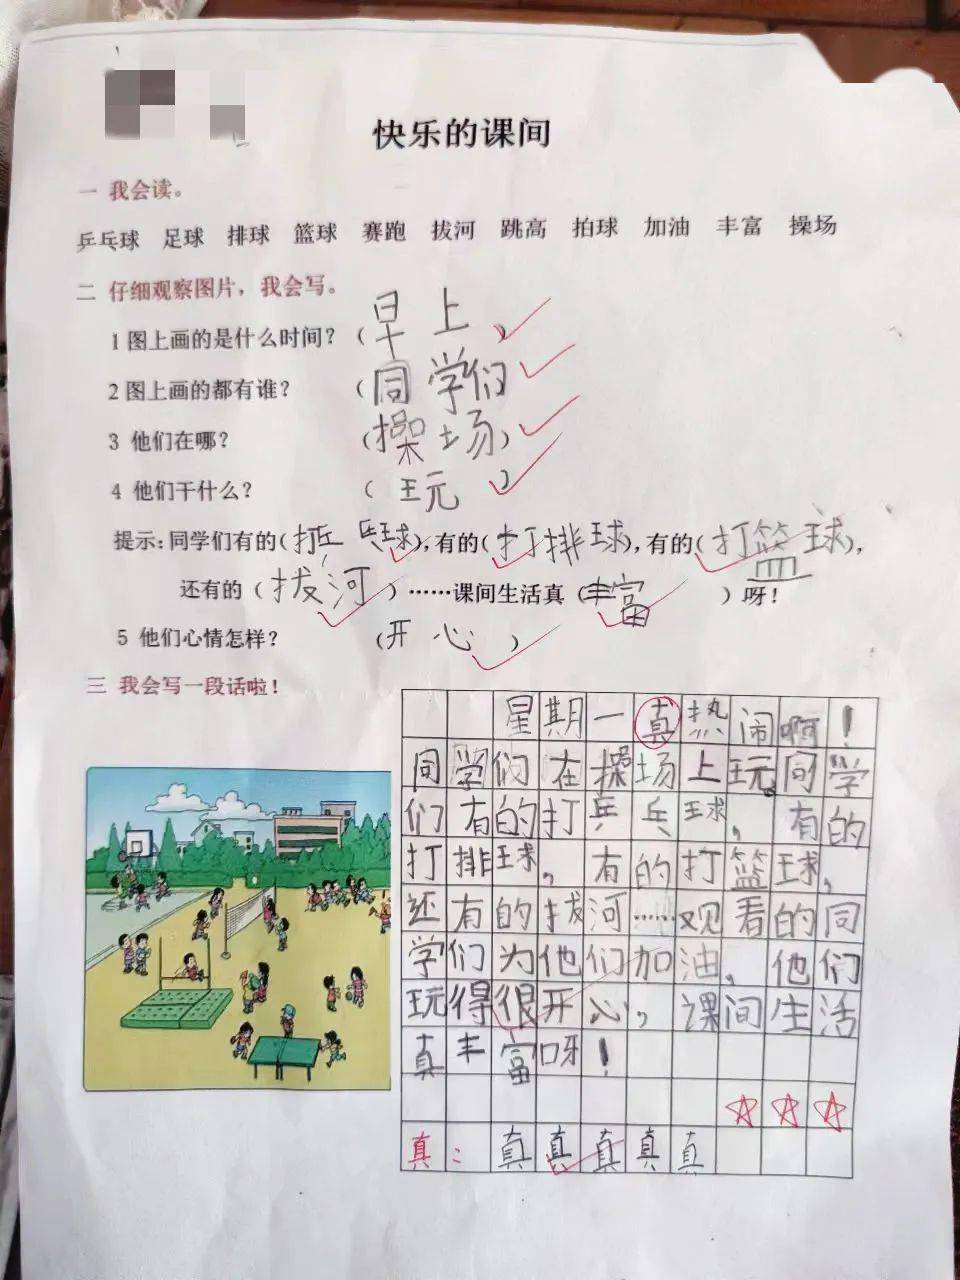 快乐的课间
一 我会读。
乒乓球 足球 排球 篮球 赛跑 拔河 跳高 拍球 加油 丰富 操场
二 仔细观察图片，我会写。
1 图上画的是什么时间？（早上）
2 图上画的都有谁？（同学们
3 他们在哪？（操场）
4 他们干什么？（玩）
提示：同学们有的（打乒乓球），有的（打排球），有的（打篮球），
还有的（拔河）……课间生活真（丰富）呀！
5 他们心情怎样？（开心）
三 我会写一段话啦！
星期一真热闹啊！
同学们在操场上玩。同学
们有的打乒乓球，有的
打排球，有的打篮球，
还有的拔河……观看的同
学们为他们加油，他们
玩得很开心，课间生活
真丰富呀！
真：真真真真真